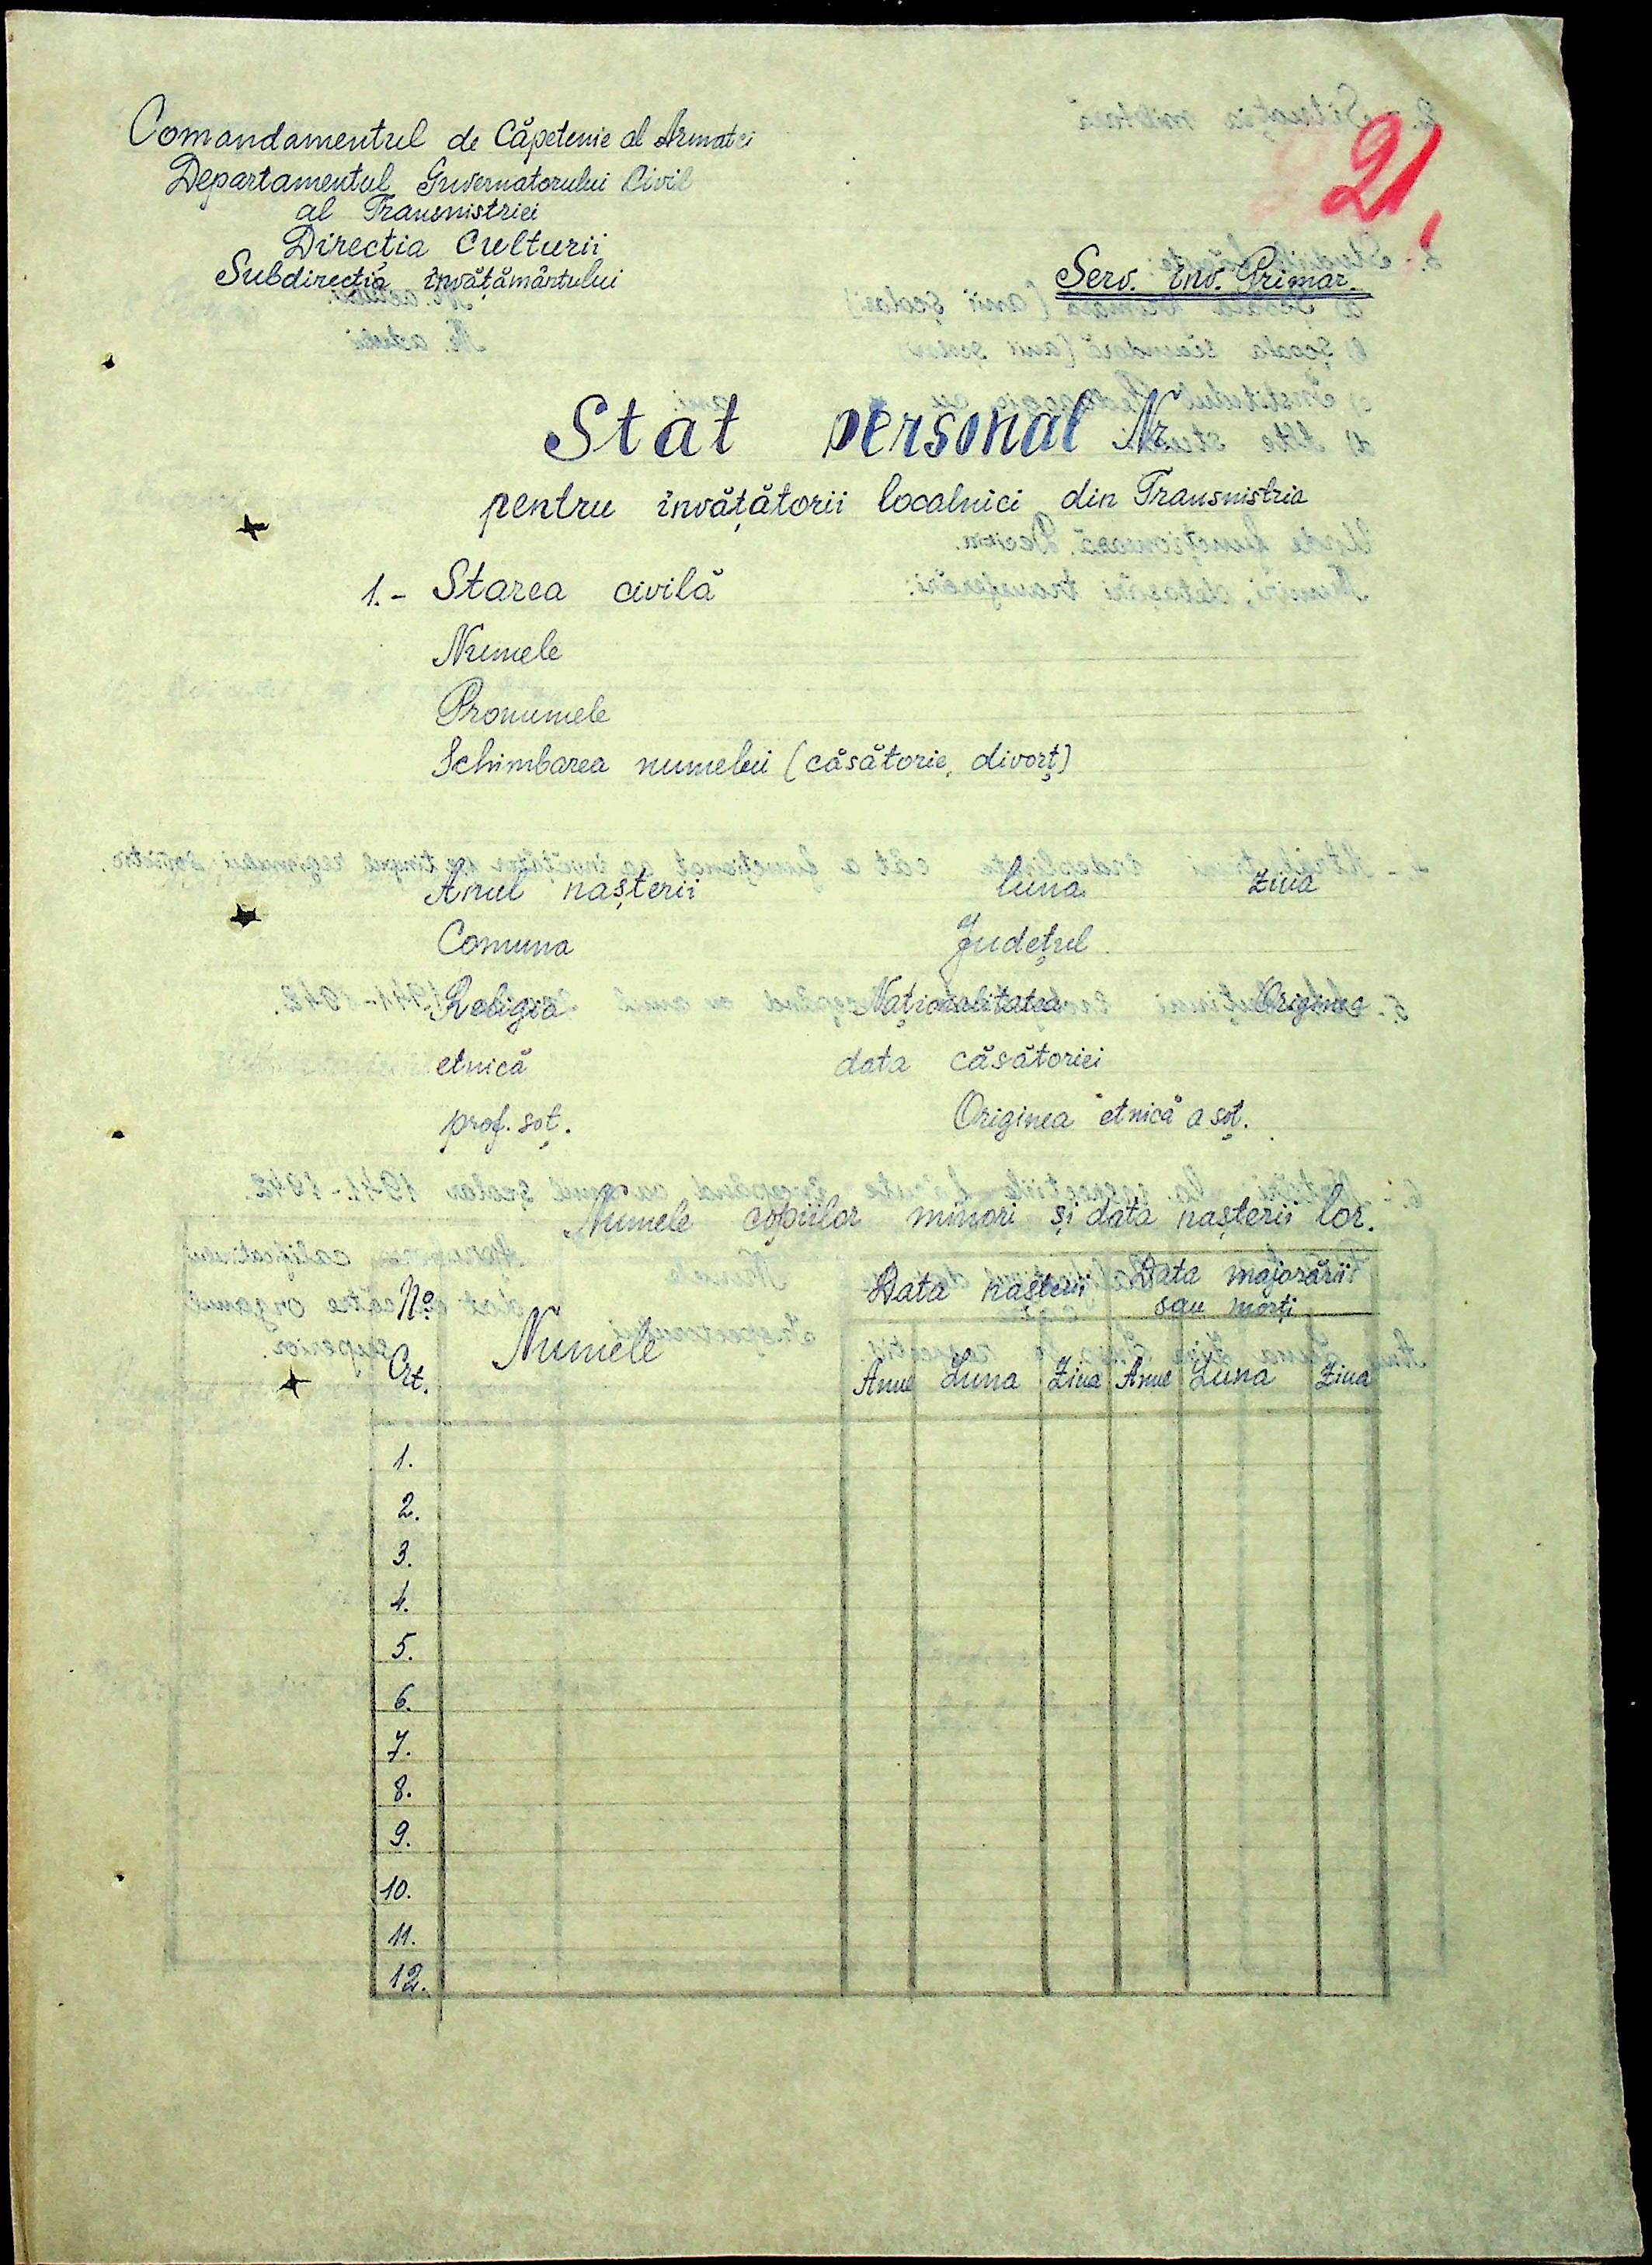 Comandamentul de Căpetenie al Armatei
Departamentul Guvernatorului Civil
al Transnistriei
Direcția Culturii
Subdirecția învățământului
21,
Serv. înv. Primar.
Stat personal Nr.
pentru învățătorii localnici din Transnistria
1.- Starea civilă
Numele
Pronumele
Schimbarea numelui (căsătorie, divorț)
Anul nașterii luna ziua
Comuna Județul
Religia Naționalitatea Originea
etnică data căsătoriei
prof. soț. Originea etnică a soț.
Numele copiilor minori și data nașterii lor.
No Crt. Numele Data nașterii Data majorării sau morți
Anul Luna Ziua Anul Luna Ziua
1.
2.
3.
4.
5.
6.
7.
8.
9.
10.
11.
12.